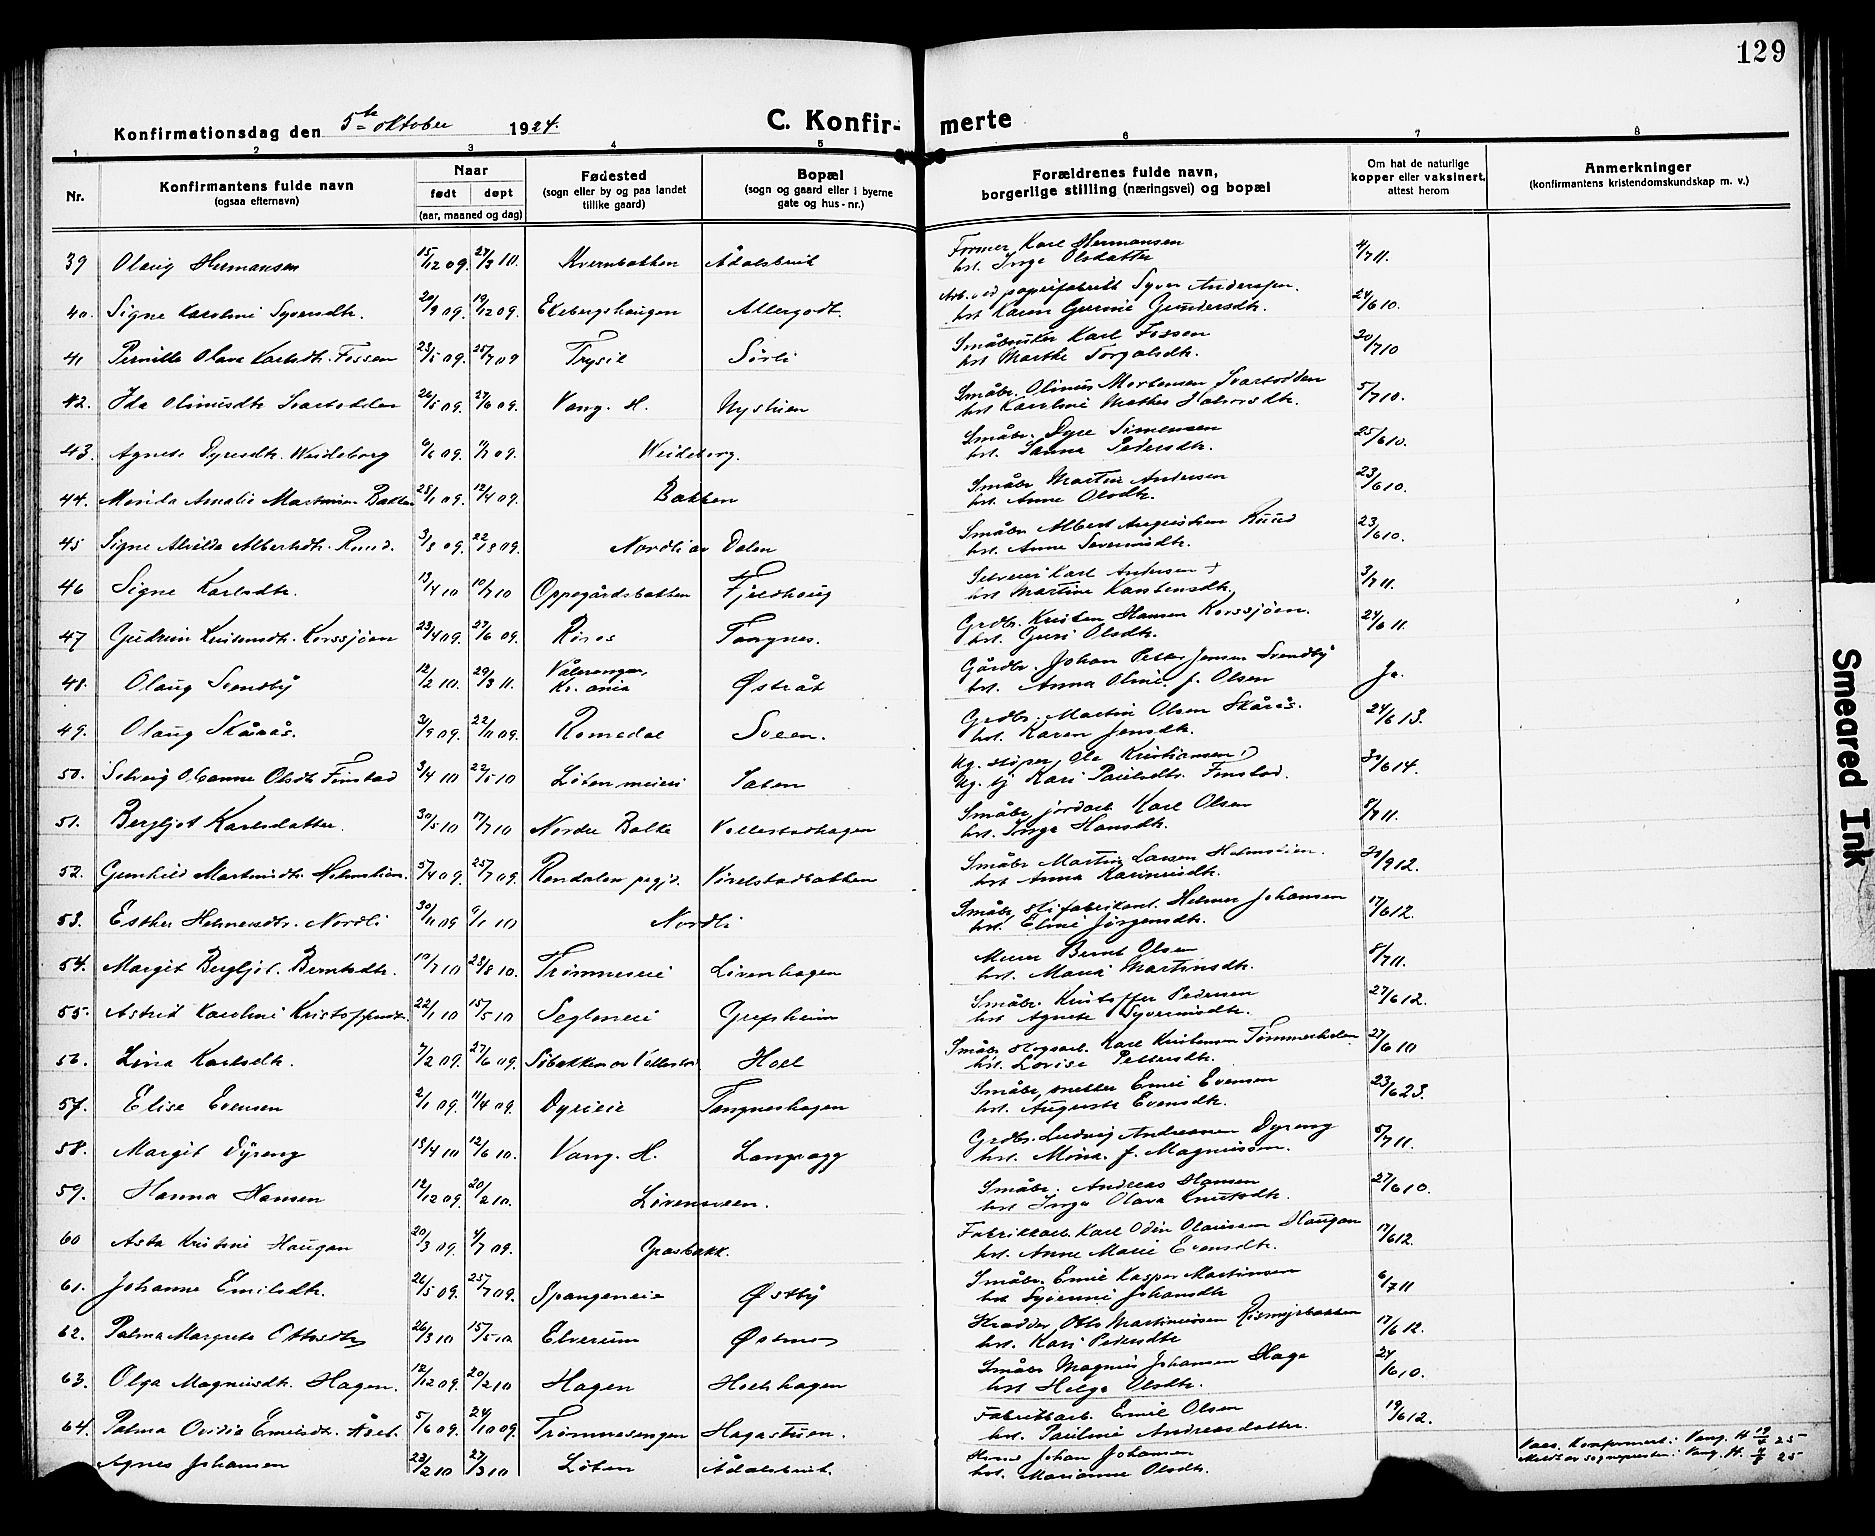 129
Konfirmationsdag den 5te oktober 1924.
C. Konfir- merte
1 2 3 4 5 6 7 8
Nr.
Konfirmantens fulde navn
(ogsaa efternavn)
Naar
født døpt
(aar, maaned og dag)
Fødested
(sogn eller by og paa landet
tillike gaard)
Bopæl
(sogn og gaard eller i byerne
gate og hus-nr.)
Forældrenes fulde navn,
borgerlige stilling (næringsvei) og bopæl
Om hat de naturlige
kopper eller vaksinert,
attest herom
Anmerkninger
(konfirmantens kristendomskundskap m. v.)
39 Olaug Hermansen 15/12 09. 27/3 10. Kvernbakken Ådalsbruk Former Karl Hermansen 4/7 11.
hst. Inga Olsdatter
40. Signe Karoline Syversdtr. 20/9 09. 19/12 09. Ekebergshaugen Allergodt. Arb. ved papirfabrik Syver Anderssen. 24/6 10.
hst Karen Gurine Gundersdtr.
41 Pernille Olava Karlsdtr. Fossen 23/5 09. 25/7 09 Trysil Sørli Småbruker Karl Fossen 20/7 10
hst Marthe Torgalsdtr.
42. Ida Olinusdtr Svartodden 26/5 09. 27/6 09. Vang. H. Nystuen Småbr. Olinus Mortensen Svartodden 5/7 10.
hst Karoline Mathea Halvorsdtr.
43. Agnete Dyresdtr. Weideborg 6/6 09. 11/7 09. Weideborg. Småbr. Dyre Simensen 25/6 10.
hst. Sanna Pedersdtr.
44. Amalie Bakken 28/1 09. 12/4 09. Bakken Småbr Martin Andersen 23/6 10.
hst. Anne Olsdtr.
45 Signe Alvilda Albertsdtr. Ruud. 3/3 09. 22/3 09. Nordli av Dalen Småbr Albert Augustsen Ruud 23/6 10.
hst. Anne Severinsdtr.
46 Signe Karlsdtr. 13/4 10 10/7 10 Oppegårdsbakken Fjeldhaug Karl Andersen + 3/7 11.
hst Martine Karstensdtr.
47 Gudrun Kristensdtr. Korssjøen 23/4 09. 27/6 09. Røros Tangnes. Grdbr. Kristen Hansen Korssjøen. 24/6 11.
hst. Guri Olsdtr.
48. Olaug Svendby 12/2 10. 29/3 11. Vålerengen, Østråt Gårdbr. Johan Petter Jensen Svendby Ja.
Kr.ania hst. Anna Oline f. Olsen
49. Olaug Skåråås. 3/9 09. 22/11 09. Romedal Sveen. Grdbr. Martin Olsen Skårås. 24/6 13.
hst. Karen Jensdtr.
50. Solveig Olsdtr Finstad 3/4 10 22/5 10 Løten meieri Saten Ug. støper, Ole Kristiansen 30/6 14.
Ug. tj Kari Paulsdtr. Finstad.
51. Bergljot Karlsdatter. 30/5 10 17/7 10 Nordre Balke Vollestadhagen Småbr, jordarb. Karl Olsen 8/7 11.
hst. Inga Hansdtr.
52. Gunhild Martinsdtr. 5/4 09. 25/7 09. Rendalen Småbr Martin Larsen 30/9 12.
hst Anna Karinusdtr.
53. Esther Helmersdtr. Nordli 30/11 09 9/1 10 Nordli Småbr, skifabrikant. Helmer Johansen 17/6 12.
hst. Eline Jørgensdtr.
54. Margit Bergljot. Berntsdtr. 10/7 10 28/8 10. Løvenhagen Murer Bernt Olsen 8/7 11.
hst. Marie Martinsdtr.
55. Astrid Karoline Kristoffersdtr. 22/1 10 15/5 10 Grefsheim Småbr. Kristoffer Pedersen 27/6 12.
hst Agnete Syverinsdtr.
56. Lina Karlsdtr. 7/2 09. 27/6 09. Hoel Småbr Skogsarb. Karl Kristensen Tømmerholen 27/6 10
hst. Lovise Pettersdtr.
57. Elise Evensen 2/1 09. 11/4 09. Dyrieie Tangneshagen Småbr, snekker Emil Evensen 23/6 23.
hst. Auguste Evensdtr.
58. Margit Dyreng 13/4 10 12/6 10. Vang. H. Langvagg Grdbr. Ludvig Andreassen Dyreng 5/7 11.
hst. Mina. f. Magnussen.
59. Hanna Hansen 12/12 09. 20/2 10. Løvensveen. Småbr. Andreas Hansen 27/6 10.
hst Inga Olava Knutsdtr.
60 Asta Kristine Haugan 20/3 09. 4/7 09. Gråsbakk. Fabrikkarb. Karl Odin Olaussen Haugan 17/6 12.
hst. Anne Marie Evensdtr.
61. Johanne Emilsdtr. 26/5 09. 25/7 09. Spangeneie Østby Småbr. Emil Kasper Martinsen 6/7 11
hst Syverine Johansdtr
62. Palma Margrete Ottosdtr 26/3 10 15/5 10 Elverum Østmo Skrædder Otto Martinussen 17/6 12.
hst. Kari Pedersdtr
63. Olga Magnusdtr. Hagen. 12/12 09. 20/2 10 Hagen Hoelshagen Småbr Magnus Johansen Hage 24/6 10.
hst Helga Olsdtr.
64. Palma Ovidia Emilsdtr. 5/6 09. 24/10 09. Trømmesengen Hagastuen. Fabrikkarb. Emil Olsen 19/6 12.
hst. Pauline Andreasdatter.
Agnes Johansen 23/2 10 27/3 10 Løten Ådalsbruk. Johan Johansen Vacs. Konfirmert: Vang. H 19/4 25
hst. Marianne Olsdtr. Meldt av sognepresten: Vang. H. 25
Smeared Ink